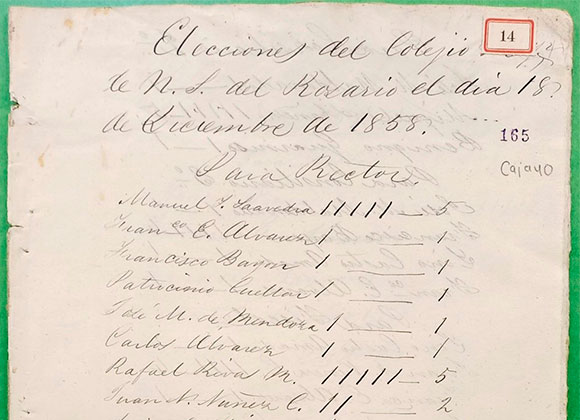 14
Elecciones del Colejio
de N. S. del Rosario el dia 18
de Diciembre de 1858.
165
Cajayo
Para Rector.
Manuel J. Saavedra IIIII — 5
Fran.co E. Alvarez I — 1
Francisco Bayon I — 1
Patrocinio Cuellar I — 1
José M. de Mendoza I — 1
Carlos Alvarez I — 1
Rafael Rivas M. IIIII — 5
Juan N. Nuñez C. II — 2